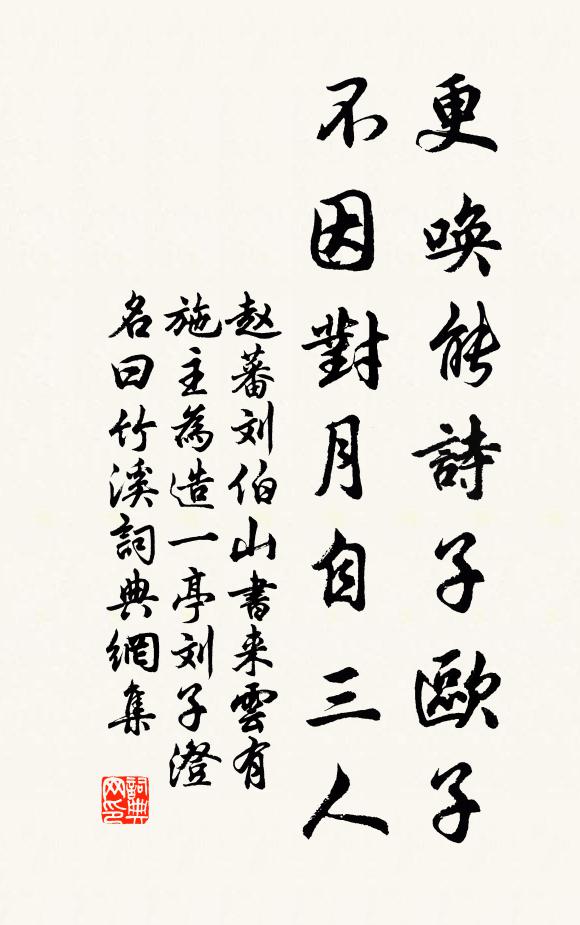 更喚能詩子歐子
不因對月自三人
赵蕃刘伯山書来雲有
施主為造一亭刘子澄
名曰竹溪詞典網集
詞典网印